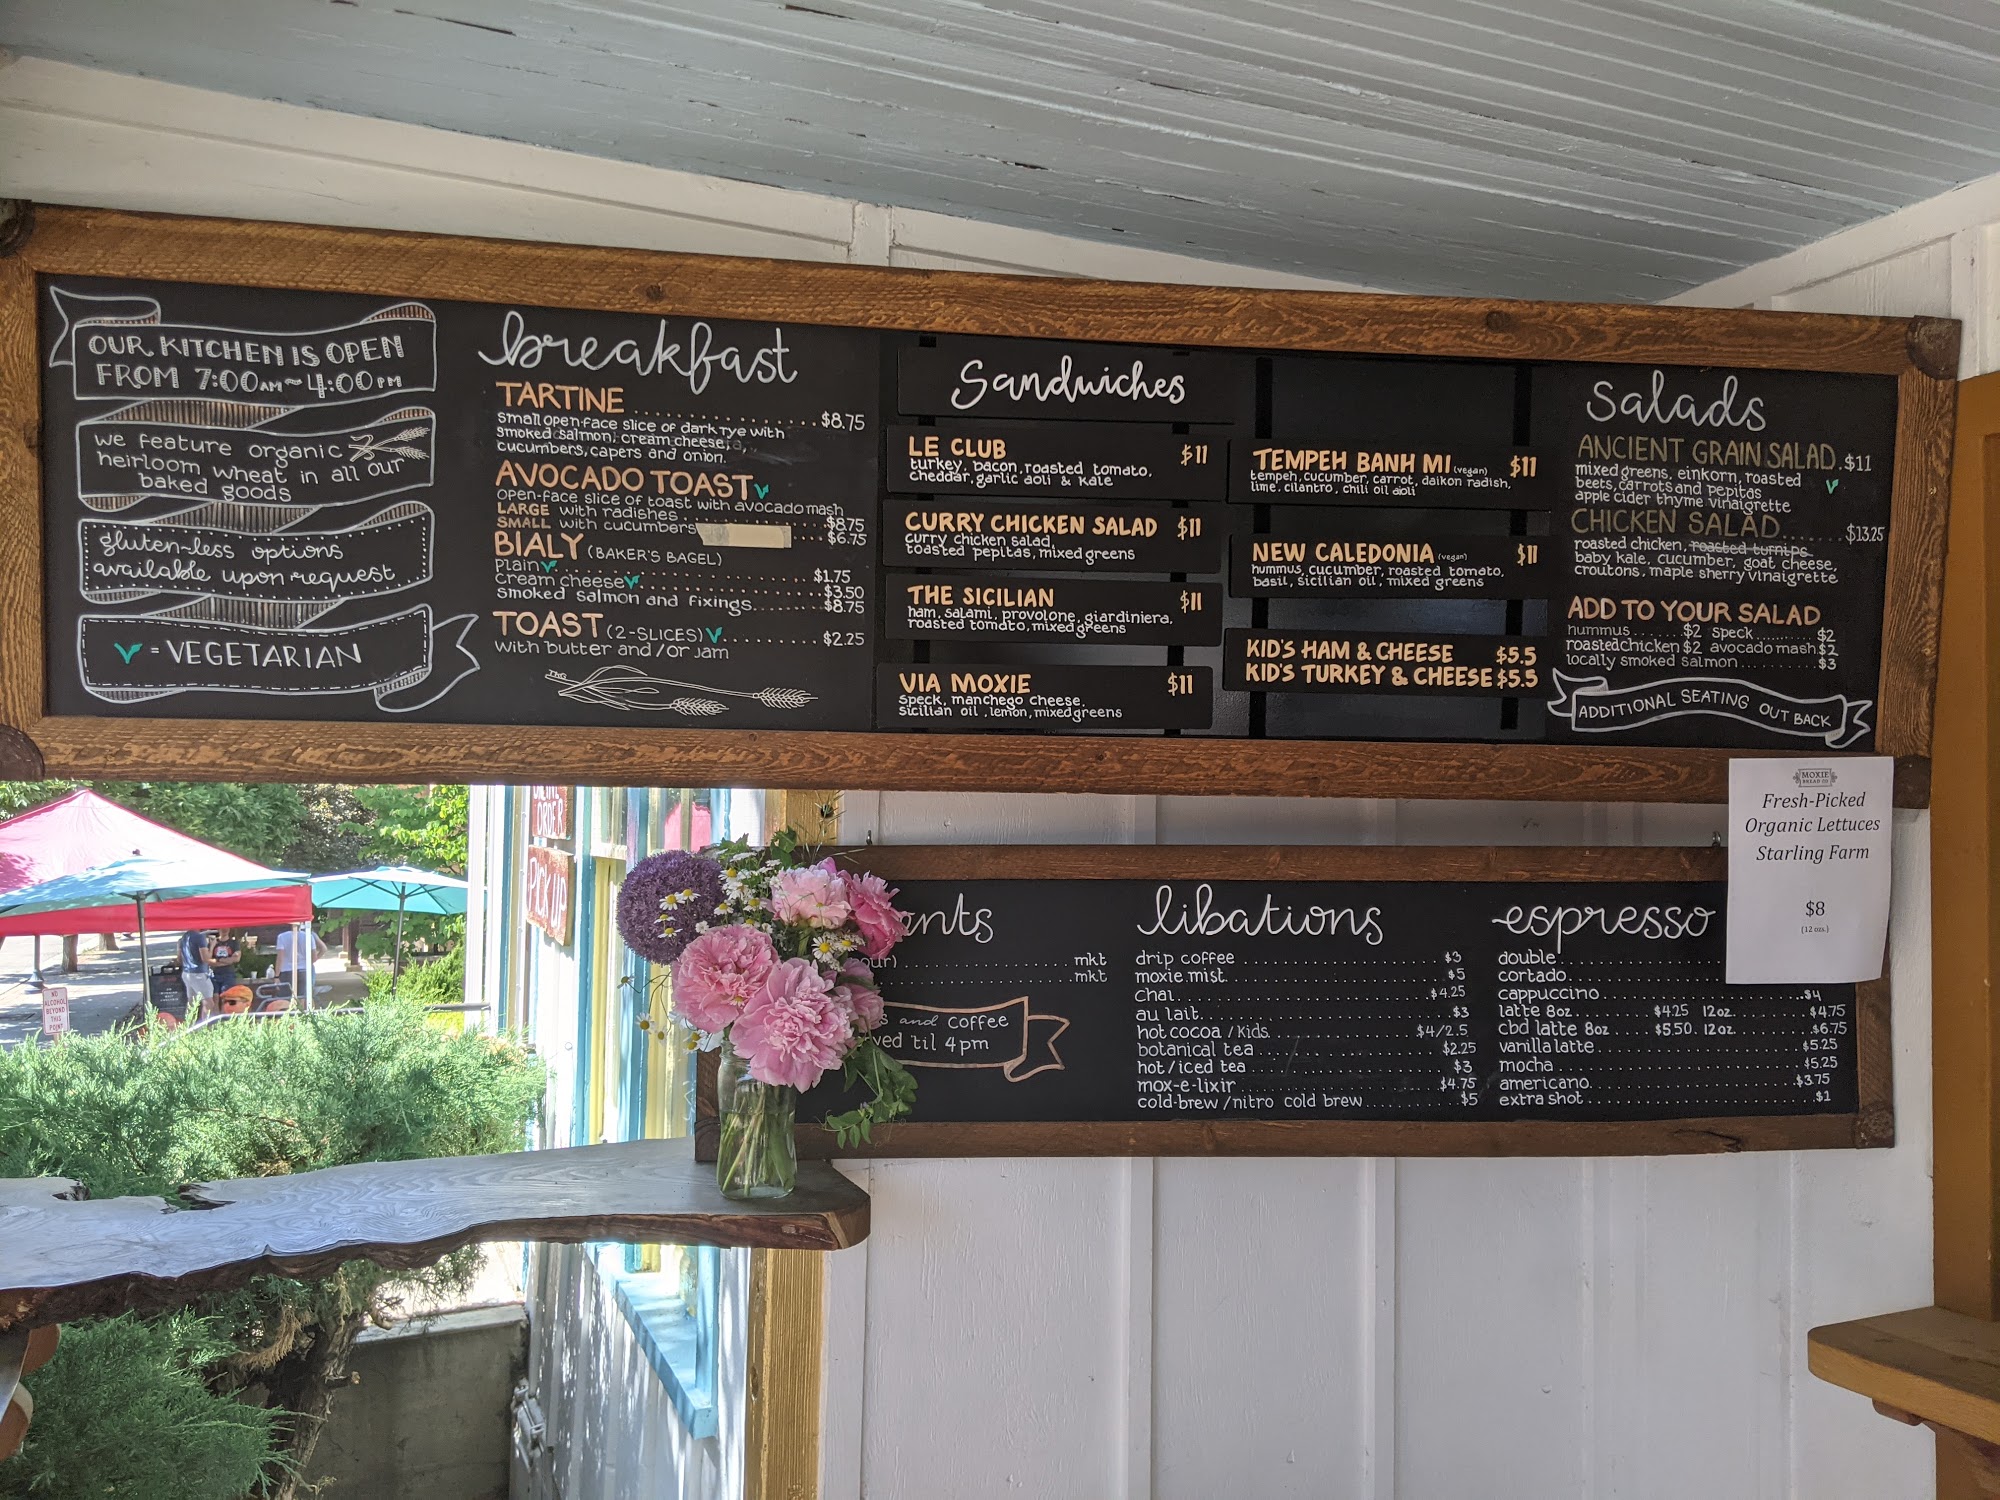 OUR KITCHEN IS OPEN
FROM 7:00AM~4:00PM
we feature organic
heirloom wheat in all our
baked goods
gluten-less options
available upon request
V = VEGETARIAN
breakfast
TARTINE ........ $8.75
Small open-face slice of dark rye with
smoked salmon, cream cheese,
cucumbers, capers and onion.
AVOCADO TOAST V
open-face slice of toast with avocado mash
LARGE with radishes ........ $8.75
SMALL with cucumbers .... $6.75
BIALY (BAKER'S BAGEL)
Plain V ........ $1.75
Cream cheese V ........ $3.50
Smoked salmon and fixings...... $8.75
TOAST (2-SLICES) V ........ $2.25
with butter and/or jam
Sandwiches
LE CLUB $11
turkey, bacon, roasted tomato,
cheddar, garlic aoli & kale
CURRY CHICKEN SALAD $11
curry chicken salad,
toasted pepitas, mixed greens
THE SICILIAN $11
ham, salami, provolone, giardiniera,
roasted tomato, mixed greens
VIA MOXIE $11
speck, manchego cheese,
sicilian oil, lemon, mixed greens
TEMPEH BANH MI (vegan) $11
tempeh, cucumber, carrot, daikon radish,
lime, cilantro, chili oil aoli
NEW CALEDONIA (vegan) $11
hummus, cucumber, roasted tomato,
basil, sicilian oil, mixed greens
KID'S HAM & CHEESE $5.5
KID'S TURKEY & CHEESE $5.5
Salads
ANCIENT GRAIN SALAD. $11
mixed greens, einkorn, roasted
beets, carrots and pepitas V
apple cider thyme vinaigrette
CHICKEN SALAD........ $13.25
roasted chicken, roasted turnips
baby kale, cucumber, goat cheese,
croutons, maple sherry vinaigrette
ADD TO YOUR SALAD
hummus ........ $2 speck ........ $2
roasted chicken $2 avocado mash $2
locally smoked salmon ........ $3
ADDITIONAL SEATING OUT BACK
MOXIE
BREAD CO
Fresh-Picked
Organic Lettuces
Starling Farm
$8
(12 ozs.)
ORDER
PICK UP
NO
ALCOHOL
BEYOND
THIS
POINT
mkt
mkt
and coffee
til 4pm
libations
drip coffee ........ $3
moxie mist ........ $5
chai ........ $4.25
au lait ........ $3
hot cocoa / kids ........ $4/2.5
botanical tea ........ $2.25
hot/iced tea ........ $3
mox-e-lixir ........ $4.75
cold-brew/nitro cold brew ........ $5
espresso
double
cortado
cappuccino ........ $4
latte 8oz ...... $4.25 12oz ........ $4.75
cbd latte 8oz .... $5.50. 12oz ........ $6.75
vanilla latte ........ $5.25
mocha ........ $5.25
americano ........ $3.75
extra shot ........ $1